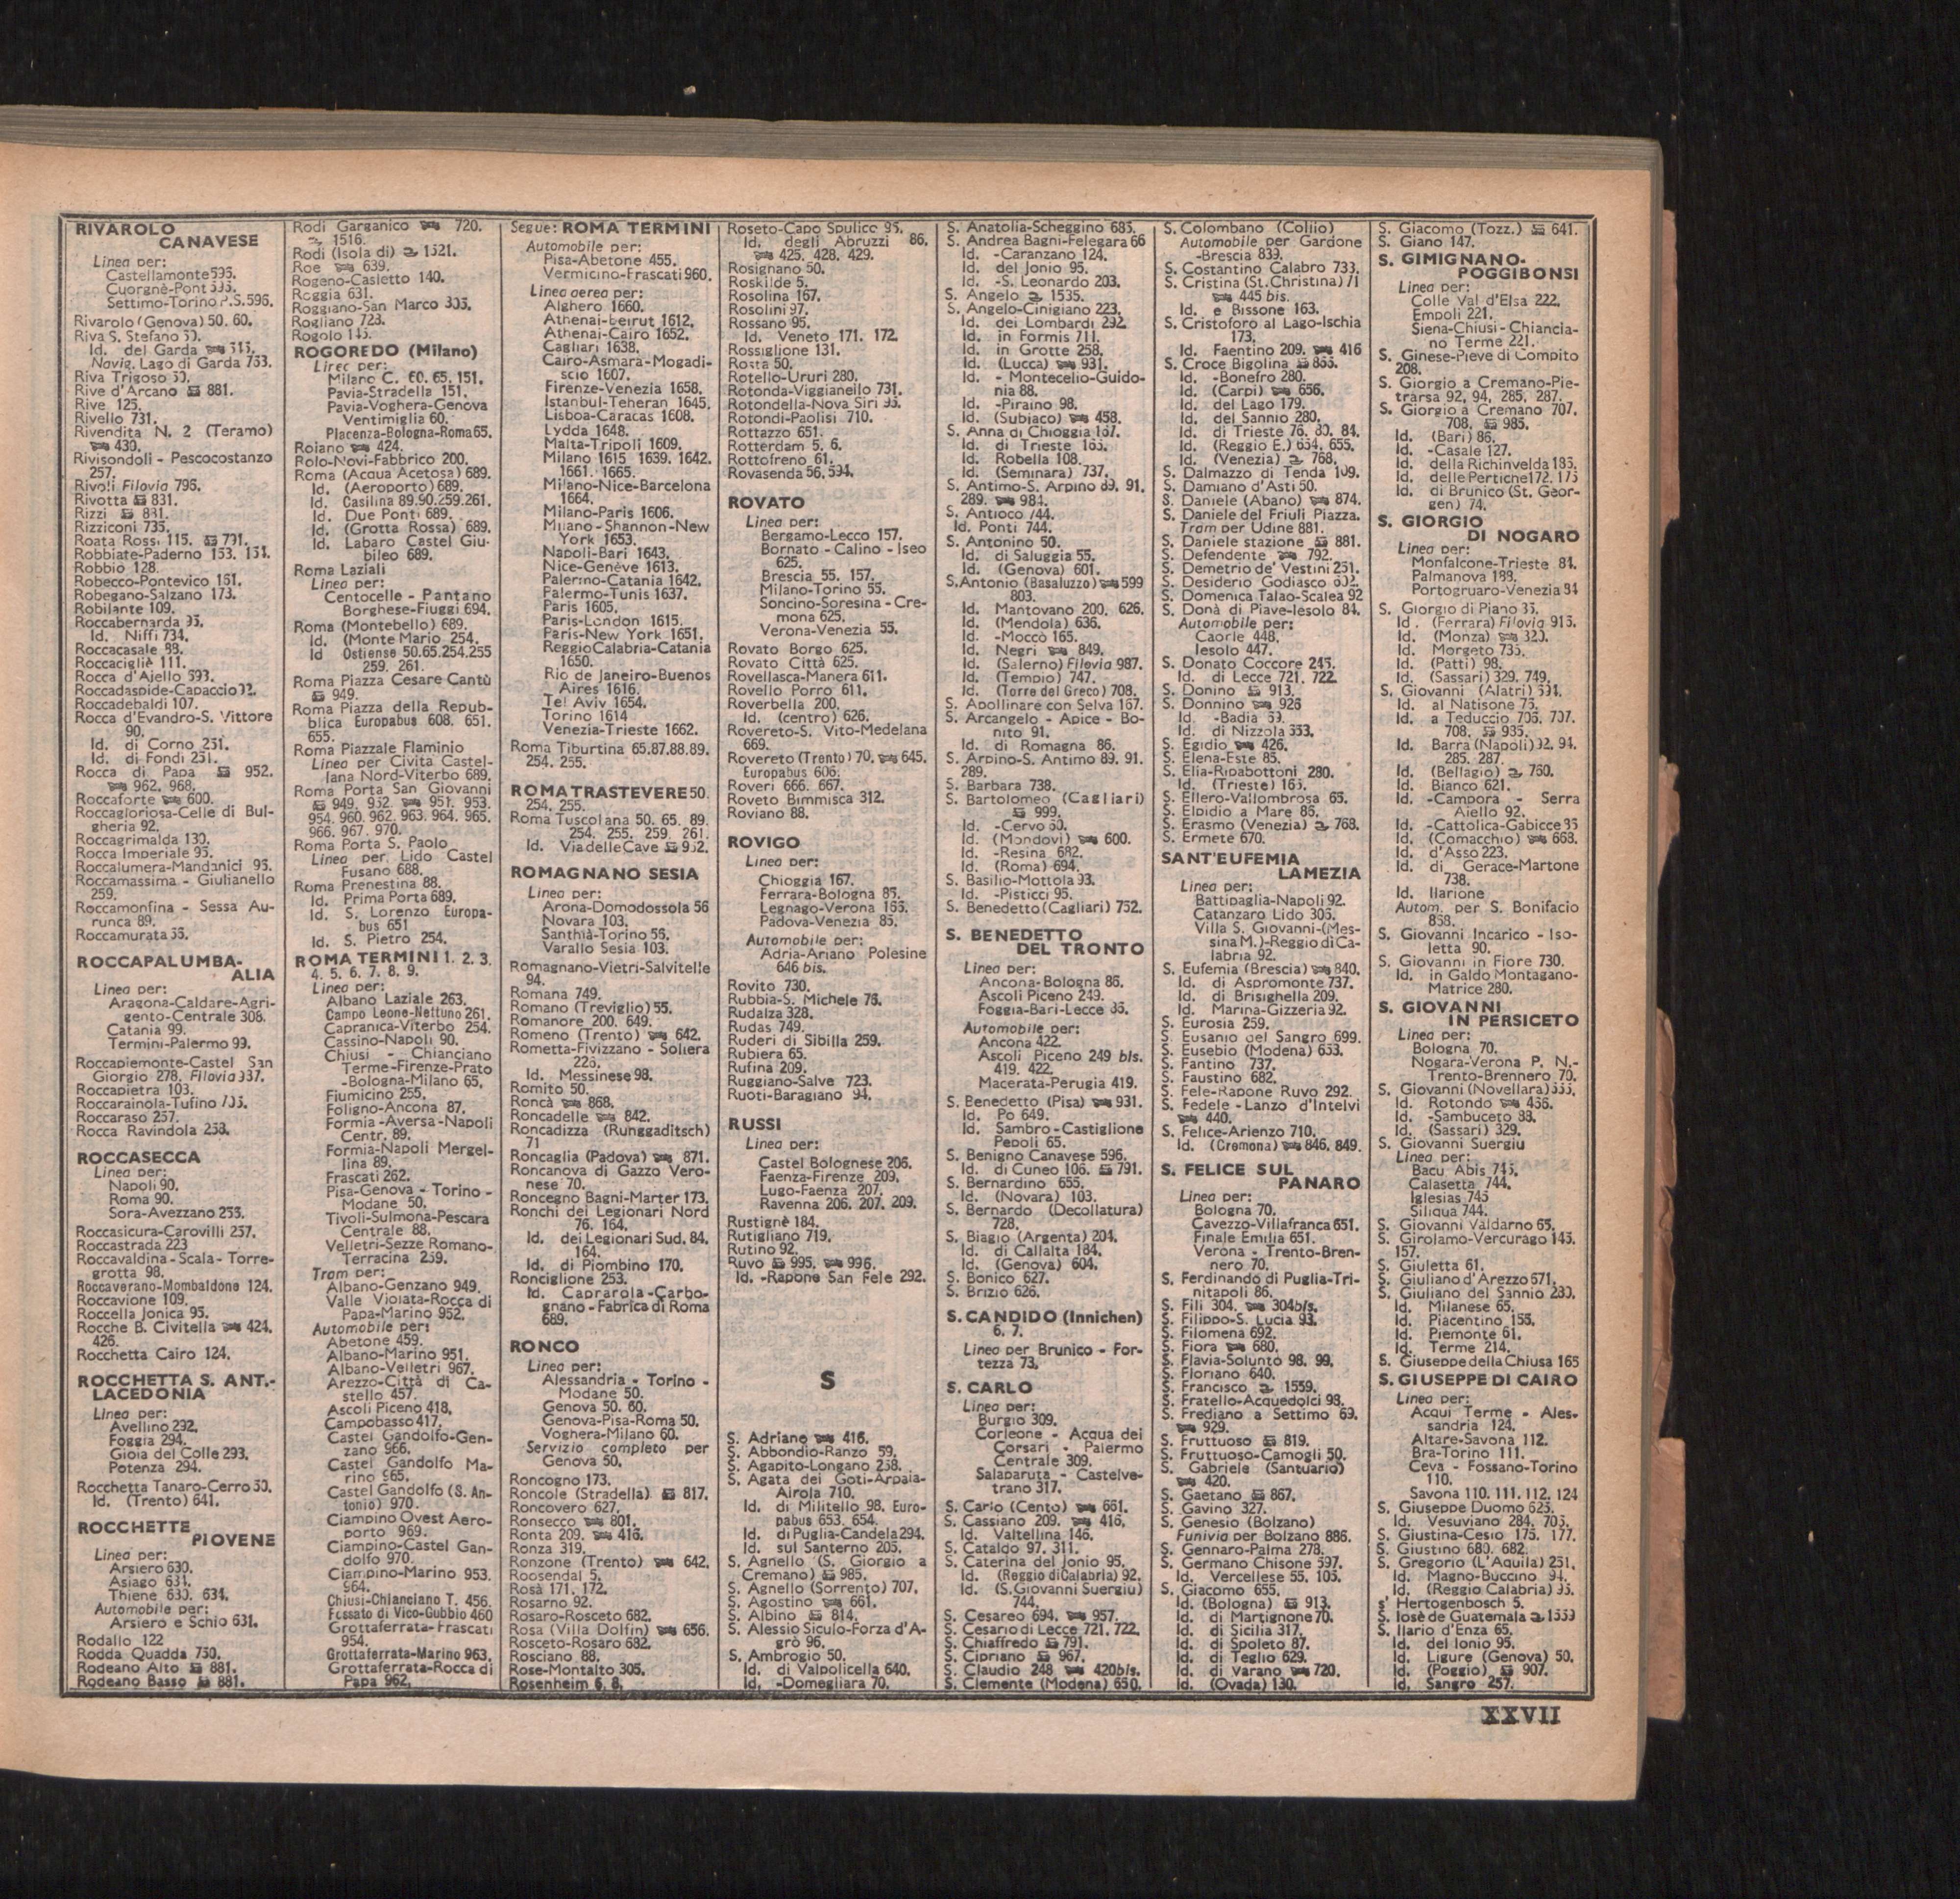 RIVAROLO
CANAVESE
Linea per:
Castellamonte 595.
Cuorgnè-Pont 595.
Settimo-Torino P.S. 596.
Rivarolo (Genova) 50. 60.
Riva S. Stefano 50.
Id. del Garda 315.
Navig. Lago di Garda 753.
Riva Trigoso 50.
Rive d'Arcano 881.
Rive 125.
Rivello 731.
Rivendita N. 2 (Teramo)
430.
Rivisondoli - Pescocostanzo
257.
Rivoli Filovia 796.
Rivotta 831.
Rizzi 881.
Rizziconi 735.
Roata Rossi 115. 791.
Robbiate-Paderno 153. 154.
Robbio 128.
Robecco-Pontevico 161.
Robegano-Salzano 173.
Robilante 109.
Roccabernarda 95.
Id. Niffi 734.
Roccacasale 88.
Roccacigliè 111.
Rocca d'Ajello 693.
Roccadaspide-Capaccio 92.
Roccadebaldi 107.
Rocca d'Evandro-S. Vittore
90.
Id. di Corno 251.
Id. di Fondi 251.
Rocca di Papa 952.
962. 968.
Roccaforte 600.
Roccagloriosa-Celle di Bul-
gheria 92.
Roccagrimalda 130.
Rocca Imperiale 95.
Roccalumera-Mandanici 95.
Roccamassima - Giulianello
259.
Roccamonfina - Sessa Au-
runca 89.
Roccamurata 66.
ROCCAPALUMBA-
ALIA
Linea per:
Aragona-Caldare-Agri-
gento-Centrale 308.
Catania 99.
Termini-Palermo 99.
Roccapiemonte-Castel San
Giorgio 278. Filovia 937.
Roccapietra 103.
Roccarainola-Tufino 705.
Roccaraso 257.
Rocca Ravindola 258.
ROCCASECCA
Linea per:
Napoli 90.
Roma 90.
Sora-Avezzano 255.
Roccasicura-Carovilli 257.
Roccastrada 223
Roccavaldina - Scala - Torre-
grotta 98.
Roccaverano-Mombaldone 124.
Roccavione 109.
Roccella Jonica 95.
Rocche B. Civitella 424.
426.
Rocchetta Cairo 124.
ROCCHETTA S. ANT.-
LACEDONIA
Linea per:
Avellino 292.
Foggia 294.
Gioia del Colle 293.
Potenza 294.
Rocchetta Tanaro-Cerro 50.
Id. (Trento) 641.
ROCCHETTE
PIOVENE
Linea per:
Arsiero 630.
Asiago 631.
Thiene 630. 634.
Automobile per:
Arsiero e Schio 631.
Rodallo 122
Rodda Quadda 750.
Rodeano Alto 881.
Rodeano Basso 881.
Rodi Garganico 720.
1516.
Rodi (Isola di) 1521.
Roe 639.
Rogeno-Casletto 140.
Roggia 631.
Roggiano-San Marco 305.
Rogliano 723.
Rogolo 145.
ROGOREDO (Milano)
Linea per:
Milano C. 60. 65. 151.
Pavia-Stradella 151.
Pavia-Voghera-Genova
Ventimiglia 60.
Piacenza-Bologna-Roma 65.
Roiano 424.
Rolo-Novi-Fabbrico 200.
Roma (Acqua Acetosa) 689.
Id. (Aeroporto) 689.
Id. Casilina 89.90.259.261.
Id. Due Ponti 689.
Id. (Grotta Rossa) 689.
Id. Labaro Castel Giu-
bileo 689.
Roma Laziali
Linea per:
Centocelle - Pantano
Borghese-Fiuggi 694.
Roma (Montebello) 689.
Id. (Monte Mario 254.
Id Ostiense 50.65.254.255
259. 261.
Roma Piazza Cesare Cantù
949.
Roma Piazza della Repub-
blica Europabus 608. 651.
655.
Roma Piazzale Flaminio
Linea per Civita Castel-
lana Nord-Viterbo 689.
Roma Porta San Giovanni
949. 952. 951. 953.
954. 960. 962. 963. 964. 965.
966. 967. 970.
Roma Porta S. Paolo
Linea per Lido Castel
Fusano 688.
Roma Prenestina 88.
Id. Prima Porta 689.
Id. S. Lorenzo Europa-
bus 651
Id. S. Pietro 254.
ROMA TERMINI 1. 2. 3.
4. 5. 6. 7. 8. 9.
Linea per:
Albano Laziale 263.
Campo Leone-Nettuno 261.
Capranica-Viterbo 254.
Cassino-Napoli 90.
Chiusi - Chianciano
Terme-Firenze-Prato
-Bologna-Milano 65.
Fiumicino 255.
Foligno-Ancona 87.
Formia-Aversa-Napoli
Centr. 89.
Formia-Napoli Mergel-
lina 89.
Frascati 262.
Pisa-Genova - Torino -
Modane 50.
Tivoli-Sulmona-Pescara
Centrale 88.
Velletri-Sezze Romano-
Terracina 259.
Tram per:
Albano-Genzano 949.
Valle Violata-Rocca di
Papa-Marino 952.
Automobile per:
Abetone 459.
Albano-Marino 951.
Albano-Velletri 967.
Arezzo-Città di Ca-
stello 457.
Ascoli Piceno 418.
Campobasso 417.
Castel Gandolfo-Gen-
zano 966.
Castel Gandolfo Ma-
rino 965.
Castel Gandolfo (S. An-
tonio) 970.
Ciampino Ovest Aero-
porto 969.
Ciampino-Castel Gan-
dolfo 970.
Ciampino-Marino 953.
964.
Chiusi-Chianciano T. 456.
Fossato di Vico-Gubbio 460
Grottaferrata-Frascati
954.
Grottaferrata-Marino 963.
Grottaferrata-Rocca di
Papa 962.
Segue: ROMA TERMINI
Automobile per:
Pisa-Abetone 455.
Vermicino-Frascati 960.
Linea aerea per:
Alghero 1660.
Athenai-Beirut 1612.
Athenai-Cairo 1652.
Cagliari 1638.
Cairo-Asmara-Mogadi-
scio 1607.
Firenze-Venezia 1658.
Istanbul-Teheran 1645.
Lisboa-Caracas 1608.
Lydda 1648.
Malta-Tripoli 1609.
Milano 1615 1639. 1642.
1661. 1665.
Milano-Nice-Barcelona
1664.
Milano-Paris 1606.
Milano - Shannon-New
York 1653.
Napoli-Bari 1643.
Nice-Genève 1613.
Palermo-Catania 1642.
Palermo-Tunis 1637.
Paris 1605.
Paris-London 1615.
Paris-New York 1651.
Reggio Calabria-Catania
1650.
Rio de Janeiro-Buenos
Aires 1616.
Tel Aviv 1654.
Torino 1614
Venezia-Trieste 1662.
Roma Tiburtina 65.87.88.89.
254. 255.
ROMA TRASTEVERE 50.
254. 255.
Roma Tuscolana 50. 65. 89.
254. 255. 259. 261.
Id. Via delle Cave 952.
ROMAGNANO SESIA
Linea per:
Arona-Domodossola 56
Novara 103.
Santhià-Torino 56.
Varallo Sesia 103.
Romagnano-Vietri-Salvitelle
94.
Romana 749.
Romano (Treviglio) 55.
Romanore 200. 649.
Romeno (Trento) 642.
Rometta-Fivizzano - Soliera
225.
Id. Messinese 98.
Romito 50.
Roncà 868.
Roncadelle 842.
Roncadizza (Runggaditsch)
71
Roncaglia (Padova) 871.
Roncanova di Gazzo Vero-
nese 70.
Roncegno Bagni-Marter 173.
Ronchi dei Legionari Nord
76. 164.
Id. dei Legionari Sud. 84.
164.
Id. di Piombino 170.
Ronciglione 253.
Id. Caprarola-Carbo-
gnano - Fabrica di Roma
689.
RONCO
Linea per:
Alessandria - Torino -
Modane 50.
Genova 50. 60.
Genova-Pisa-Roma 50.
Voghera-Milano 60.
Servizio completo per
Genova 50.
Roncogno 173.
Roncole (Stradella) 817.
Roncovero 627.
Ronsecco 801.
Ronta 209. 416.
Ronza 319.
Ronzone (Trento) 642.
Roosendal 5.
Rosà 171. 172.
Rosarno 92.
Rosaro-Rosceto 682.
Rosa (Villa Dolfin) 656.
Rosceto-Rosaro 682.
Rosciano 88.
Rose-Montalto 305.
Rosenheim 6. 8.
Roseto-Capo Spulico 95.
Id. degli Abruzzi 86.
425. 428. 429.
Rosignano 50.
Roskilde 5.
Rosolina 167.
Rosolini 97.
Rossano 95.
Id. Veneto 171. 172.
Rossiglione 131.
Rosta 50.
Rotello-Ururi 280.
Rotonda-Viggianello 731.
Rotondella-Nova Siri 95.
Rotondi-Paolisi 710.
Rottazzo 651.
Rotterdam 5. 6.
Rottofreno 61.
Rovasenda 56. 594.
ROVATO
Linea per:
Bergamo-Lecco 157.
Bornato - Calino - Iseo
625.
Brescia 55. 157.
Milano-Torino 55.
Soncino-Soresina - Cre-
mona 625.
Verona-Venezia 55.
Rovato Borgo 625.
Rovato Città 625.
Rovellasca-Manera 611.
Rovello Porro 611.
Roverbella 200.
Id. (centro) 626.
Rovereto-S. Vito-Medelana
669.
Rovereto (Trento) 70. 645.
Europabus 606.
Roveri 666. 667.
Roveto Bimmisca 312.
Roviano 88.
ROVIGO
Linea per:
Chioggia 167.
Ferrara-Bologna 85.
Legnago-Verona 166.
Padova-Venezia 85.
Automobile per:
Adria-Ariano Polesine
646 bis.
Rovito 730.
Rubbia-S. Michele 76.
Rudalza 328.
Rudas 749.
Ruderi di Sibilla 259.
Rubiera 65.
Rufina 209.
Ruggiano-Salve 723.
Ruoti-Baragiano 94.
RUSSI
Linea per:
Castel Bolognese 206.
Faenza-Firenze 209.
Lugo-Faenza 207.
Ravenna 206. 207. 209.
Rustignè 184.
Rutigliano 719.
Rutino 92.
Ruvo 995. 996.
Id. -Rapone San Fele 292.
S
S. Adriano 416.
S. Abbondio-Ranzo 59.
S. Agapito-Longano 258.
S. Agata dei Goti-Arpaia-
Airola 710.
Id. di Militello 98. Euro-
pabus 653. 654.
Id. di Puglia-Candela 294.
Id. sul Santerno 205.
S. Agnello (S. Giorgio a
Cremano) 985.
S. Agnello (Sorrento) 707.
S. Agostino 661.
S. Albino 814.
S. Alessio Siculo-Forza d'A-
grò 96.
S. Ambrogio 50.
Id. di Valpolicella 640.
Id. -Domegliara 70.
S. Anatolia-Scheggino 685.
S. Andrea Bagni-Felegara 66
Id. -Caranzano 124.
Id. del Jonio 95.
Id. -S. Leonardo 203.
S. Angelo 1535.
S. Angelo-Cinigiano 223.
Id. dei Lombardi 292.
Id. in Formis 711.
Id. in Grotte 258.
Id. (Lucca) 931.
Id. - Montecelio-Guido-
nia 88.
Id. -Piraino 98.
Id. (Subiaco) 458.
S. Anna di Chioggia 167.
Id. di Trieste 165.
Id. Robella 108.
Id. (Seminara) 737.
S. Antimo-S. Arpino 89. 91.
289. 984.
S. Antioco 744.
Id. Ponti 744.
S. Antonino 50.
Id. di Saluggia 55.
Id. (Genova) 601.
S. Antonio (Basaluzzo) 599
803.
Id. Mantovano 200. 626.
Id. (Mendola) 636.
Id. -Moccò 165.
Id. Negri 849.
Id. (Salerno) Filovia 987.
Id. (Tempio) 747.
Id. (Torre del Greco) 708.
S. Apollinare con Selva 167.
S. Arcangelo - Apice - Bo-
nito 91.
Id. di Romagna 86.
S. Arpino-S. Antimo 89. 91.
289.
S. Barbara 738.
S. Bartolomeo (Cagliari)
999.
Id. -Cervo 50.
Id. (Mondovì) 600.
Id. -Resina 682.
Id. (Roma) 694.
S. Basilio-Mottola 93.
Id. -Pisticci 95.
S. Benedetto (Cagliari) 752.
S. BENEDETTO
DEL TRONTO
Linea per:
Ancona-Bologna 86.
Ascoli Piceno 249.
Foggia-Bari-Lecce 86.
Automobile per:
Ancona 422.
Ascoli Piceno 249 bis.
419. 422.
Macerata-Perugia 419.
S. Benedetto (Pisa) 931.
Id. Po 649.
Id. Sambro-Castiglione
Pepoli 65.
S. Benigno Canavese 596.
Id. di Cuneo 106. 791.
S. Bernardino 655.
Id. (Novara) 103.
S. Bernardo (Decollatura)
728.
S. Biagio (Argenta) 204.
Id. di Callalta 184.
Id. (Genova) 604.
S. Bonico 627.
S. Brizio 626.
S. CANDIDO (Innichen)
6. 7.
Linea per Brunico - For-
tezza 73.
S. CARLO
Linea per:
Burgio 309.
Corleone - Acqua dei
Corsari - Palermo
Centrale 309.
Salaparuta - Castelve-
trano 317.
S. Carlo (Cento) 661.
S. Cassiano 209. 416.
Id. Valtellina 146.
S. Cataldo 97. 311.
S. Caterina del Jonio 95.
Id. (Reggio di Calabria) 92.
Id. (S. Giovanni Suergiu)
744.
S. Cesareo 694. 957.
S. Cesario di Lecce 721. 722.
S. Chiaffredo 791.
S. Cipriano 967.
S. Claudio 248 420bis.
S. Clemente (Modena) 650.
S. Colombano (Collio)
Automobile per Gardone
-Brescia 839.
S. Costantino Calabro 733.
S. Cristina (St. Christina) 71
445 bis.
Id. e Bissone 163.
S. Cristoforo al Lago-Ischia
173.
Id. Faentino 209. 416
S. Croce Bigolina 865.
Id. -Bonefro 280.
Id. (Carpi) 656.
Id. del Lago 179.
Id. del Sannio 280.
Id. di Trieste 76. 80. 84.
Id. (Reggio E.) 654. 655.
Id. (Venezia) 768.
S. Dalmazzo di Tenda 109.
S. Damiano d'Asti 50.
S. Daniele (Abano) 874.
S. Daniele del Friuli Piazza.
Tram per Udine 881.
S. Daniele stazione 881.
S. Defendente 792.
S. Demetrio de' Vestini 251.
S. Desiderio Godiasco 602.
S. Domenica Talao-Scalea 92
S. Donà di Piave-Iesolo 84.
Automobile per:
Caorle 448.
Iesolo 447.
S. Donato Coccore 245.
Id. di Lecce 721. 722.
S. Donino 913.
S. Donnino 926
Id. -Badia 69.
Id. di Nizzola 653.
S. Egidio 426.
S. Elena-Este 85.
S. Elia-Ripabottoni 280.
Id. (Trieste) 165.
S. Ellero-Vallombrosa 65.
S. Elpidio a Mare 86.
S. Erasmo (Venezia) 768.
S. Ermete 670.
SANT'EUFEMIA
LAMEZIA
Linea per:
Battipaglia-Napoli 92.
Catanzaro Lido 306.
Villa S. Giovanni-(Mes-
sina M.)-Reggio di Ca-
labria 92.
S. Eufemia (Brescia) 840.
Id. di Aspromonte 737.
Id. di Brisighella 209.
Id. Marina-Gizzeria 92.
S. Eurosia 259.
S. Eusanio del Sangro 699.
S. Eusebio (Modena) 653.
S. Fantino 737.
S. Faustino 682.
S. Fele-Rapone Ruvo 292.
S. Fedele - Lanzo d'Intelvi
440.
S. Felice-Arienzo 710.
Id. (Cremona) 846. 849.
S. FELICE SUL
PANARO
Linea per:
Bologna 70.
Cavezzo-Villafranca 651.
Finale Emilia 651.
Verona - Trento-Bren-
nero 70.
S. Ferdinando di Puglia-Tri-
nitapoli 86.
S. Fili 304. 304bis.
S. Filippo-S. Lucia 93.
S. Filomena 692.
S. Fiora 680.
S. Flavia-Solunto 98. 99.
S. Floriano 640.
S. Francisco 1559.
S. Fratello-Acquedolci 98.
S. Frediano a Settimo 69.
929.
S. Fruttuoso 819.
S. Fruttuoso-Camogli 50.
S. Gabriele (Santuario)
420.
S. Gaetano 867.
S. Gavino 327.
S. Genesio (Bolzano)
Funivia per Bolzano 886.
S. Gennaro-Palma 278.
S. Germano Chisone 597.
Id. Vercellese 55. 105.
S. Giacomo 655.
Id. (Bologna) 913.
Id. di Martignone 70.
Id. di Sicilia 317.
Id. di Spoleto 87.
Id. di Teglio 629.
Id. di Varano 720.
Id. (Ovada) 130.
S. Giacomo (Tozz.) 641.
S. Giano 147.
S. GIMIGNANO-
POGGIBONSI
Linea per:
Colle Val d'Elsa 222.
Empoli 221.
Siena-Chiusi - Chiancia-
no Terme 221.
S. Ginese-Pieve di Compito
208.
S. Giorgio a Cremano-Pie-
trarsa 92. 94. 285. 287.
S. Giorgio a Cremano 707.
708. 985.
Id. (Bari) 86.
Id. -Casale 127.
Id. della Richinvelda 185.
Id. delle Pertiche 172. 175
Id. di Brunico (St. Geor-
gen) 74.
S. GIORGIO
DI NOGARO
Linea per:
Monfalcone-Trieste 84.
Palmanova 188.
Portogruaro-Venezia 84
S. Giorgio di Piano 85.
Id. (Ferrara) Filovia 915.
Id. (Monza) 320.
Id. Morgeto 735.
Id. (Patti) 98.
Id. (Sassari) 329. 749.
S. Giovanni (Alatri) 694.
Id. al Natisone 75.
Id. a Teduccio 706. 707.
708. 985.
Id. Barra (Napoli) 92. 94.
285. 287.
Id. (Bellagio) 760.
Id. Bianco 621.
Id. -Campora - Serra
Aiello 92.
Id. -Cattolica-Gabicce 86
Id. (Comacchio) 668.
Id. d'Asso 223.
Id. di Gerace-Martone
738.
Id. Ilarione
Autom. per S. Bonifacio
868.
S. Giovanni Incarico - Iso-
letta 90.
S. Giovanni in Fiore 730.
Id. in Galdo Montagano-
Matrice 280.
S. GIOVANNI
IN PERSICETO
Linea per:
Bologna 70.
Nogara-Verona P. N.-
Trento-Brennero 70.
S. Giovanni (Novellara) 655.
Id. Rotondo 436.
Id. -Sambuceto 88.
Id. (Sassari) 329.
S. Giovanni Suergiu
Linea per:
Bacu Abis 745.
Calasetta 744.
Iglesias 745
Siliqua 744.
S. Giovanni Valdarno 65.
S. Girolamo-Vercurago 145.
157.
S. Giuletta 61.
S. Giuliano d'Arezzo 671.
S. Giuliano del Sannio 280.
Id. Milanese 65.
Id. Piacentino 155.
Id. Piemonte 61.
Id. Terme 214.
S. Giuseppe della Chiusa 165
S. GIUSEPPE DI CAIRO
Linea per:
Acqui Terme - Ales-
sandria 124.
Altare-Savona 112.
Bra-Torino 111.
Ceva - Fossano-Torino
110.
Savona 110. 111. 112. 124
S. Giuseppe Duomo 625.
Id. Vesuviano 284. 705.
S. Giustina-Cesio 175. 177.
S. Giustino 680. 682.
S. Gregorio (L'Aquila) 251.
Id. Magno-Buccino 94.
Id. (Reggio Calabria) 95.
s' Hertogenbosch 5.
S. Iosè de Guatemala 1559
S. Ilario d'Enza 65.
Id. del Ionio 95.
Id. Ligure (Genova) 50.
Id. (Poggio) 907.
Id. Sangro 257.
XXVII